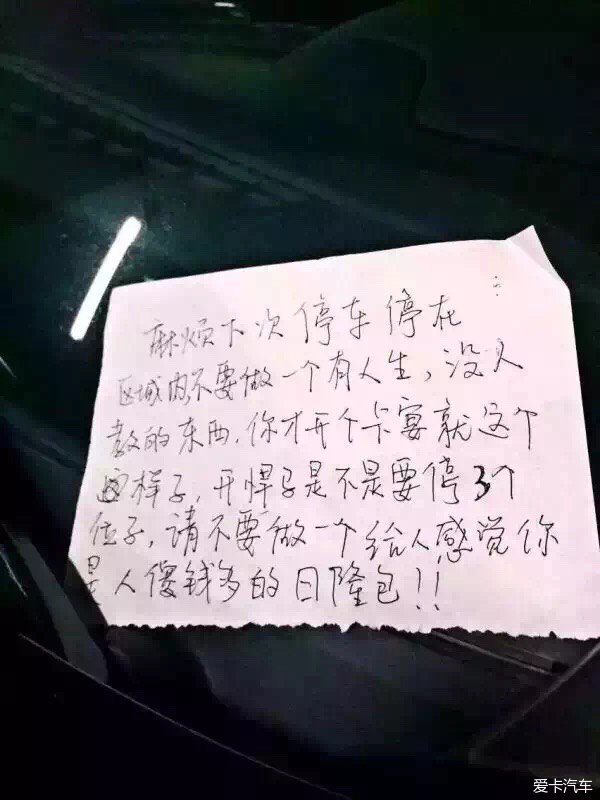 麻烦下次停车停在
区域内不要做一个有人生,没人
教的东西.你才开个卡宴就这个
这样子,开悍马是不是要停3个
位子,请不要做一个给人感觉你
是人傻钱多的日隆包!!
爱卡汽车